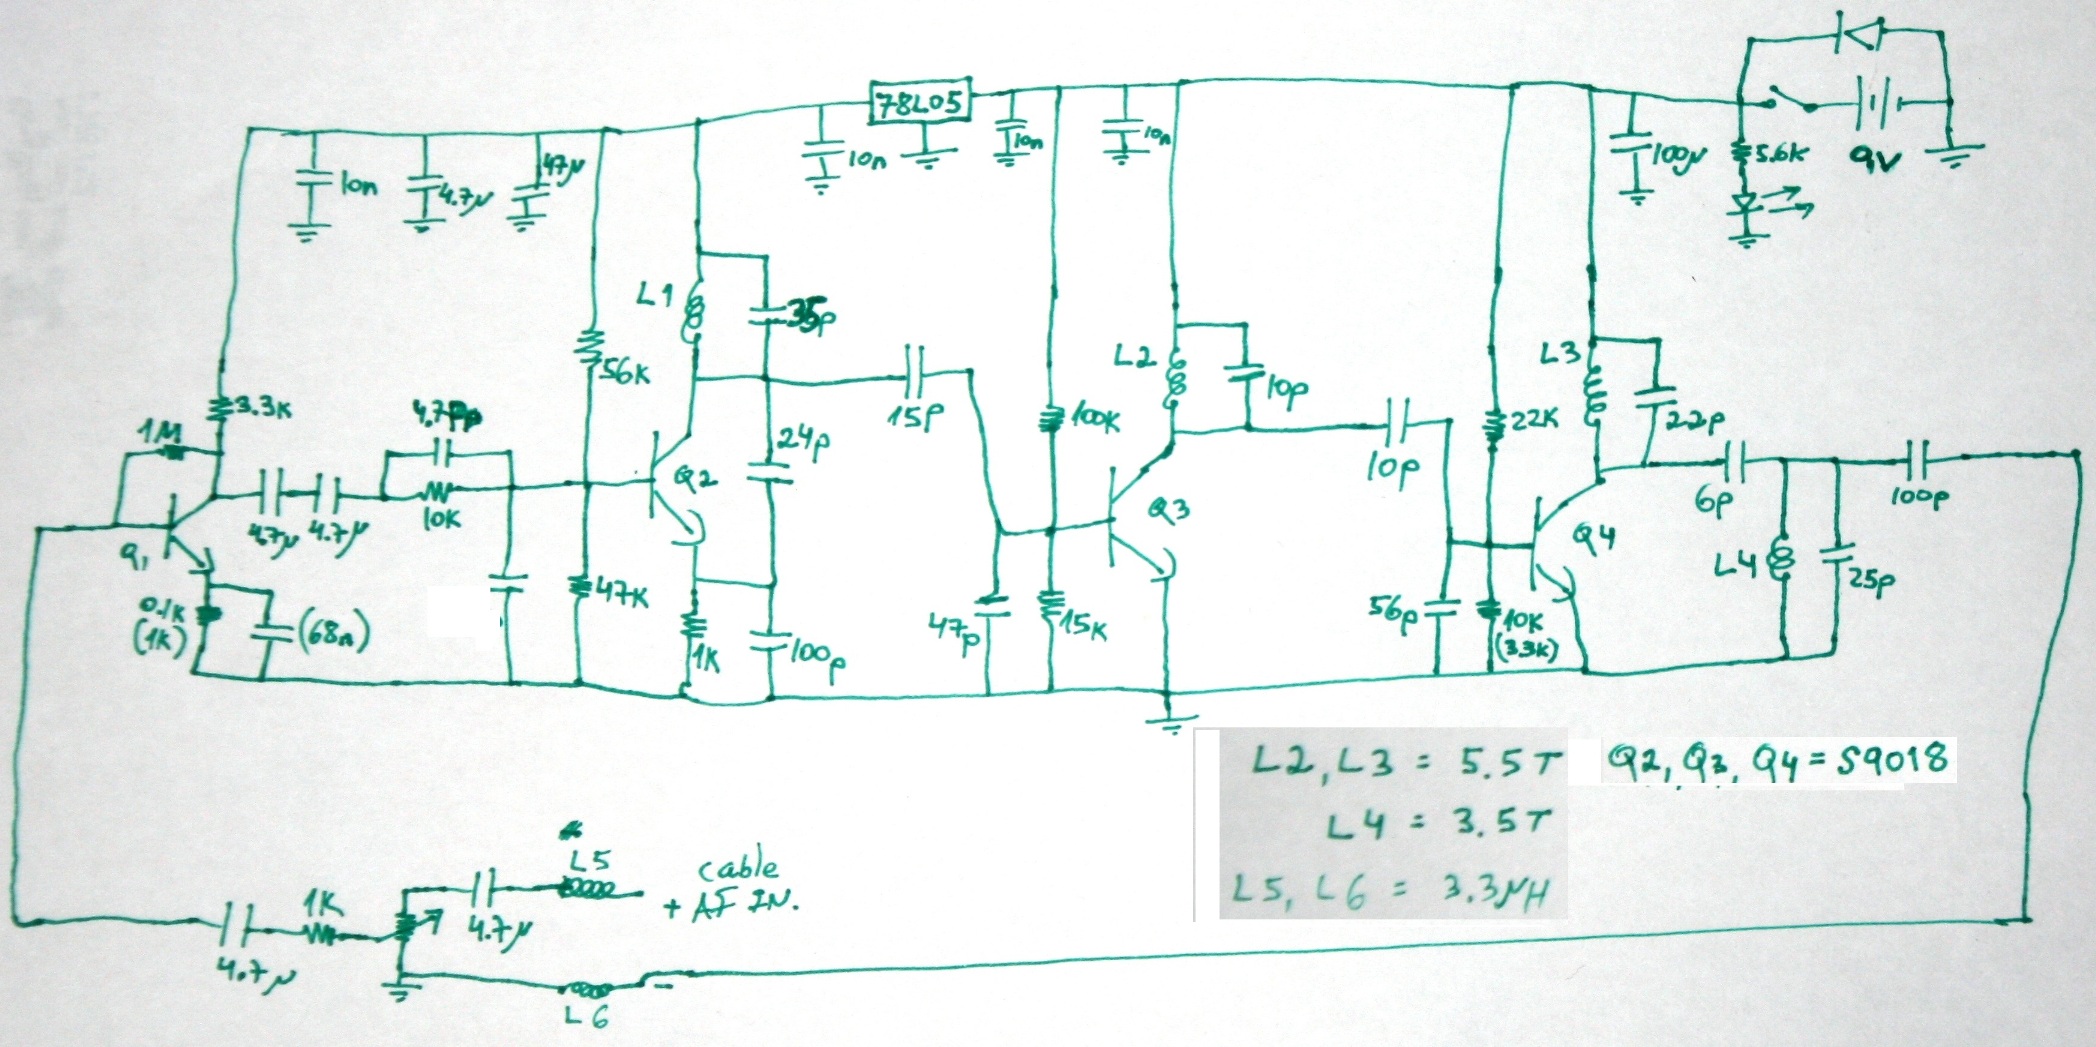 78L05
10n
4.7µ
47µ
10n
10n
10n
100µ
5.6K
9V
L1
35p
56K
3.3K
1M
4.7µ
4.7µ
10K
Q2
24p
15p
100K
L2
10p
10p
22K
L3
22p
6p
100p
Q1
0.1K
(1K)
(68n)
47K
1K
100p
47p
15K
Q3
56p
10K
(3.3K)
Q4
L4
25p
L2, L3 = 5.5T
Q2, Q3, Q4 = S9018
L4 = 3.5T
L5, L6 = 3.3µH
L5
cable
+ AF IN.
1K
4.7µ
4.7µ
-
L6